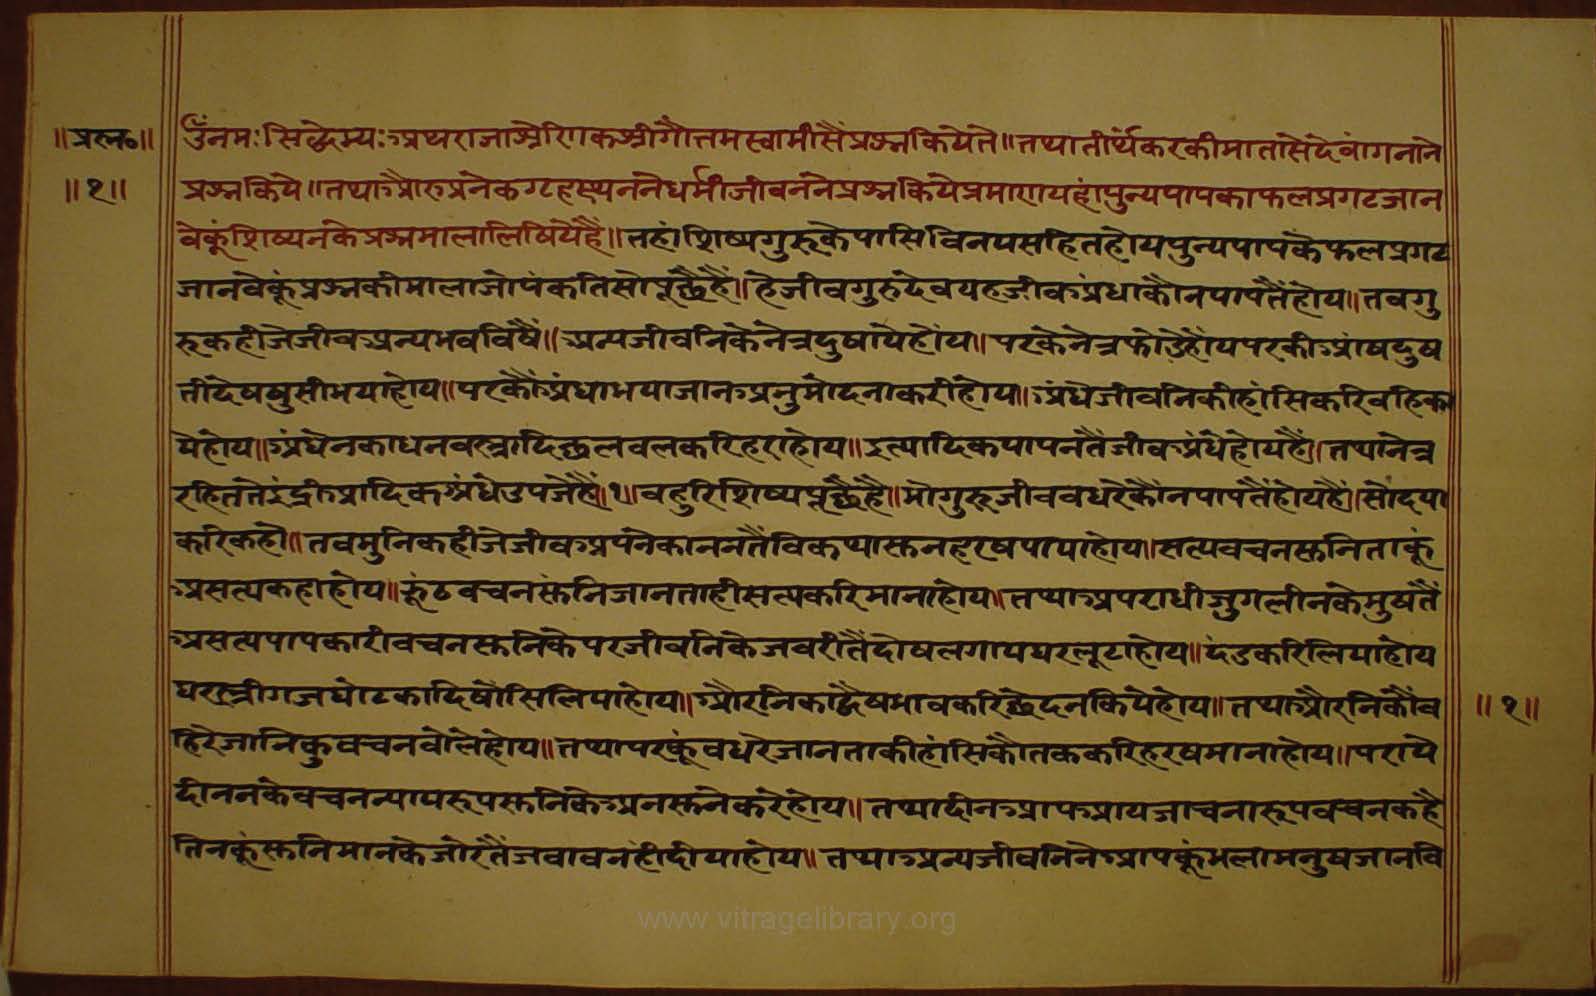 ॥प्रश्न०॥
॥१॥
ॐनमःसिद्धेभ्यःअथराजाश्रेणिकश्रीगौत्तमस्वामीसैंप्रश्नकियेते॥तथातीर्थंकरकीमातासेदेवांगनाने
प्रश्नकिये॥तथाऔरुअनेकग्रहस्थननेधर्मीजीवननेप्रश्नकियेप्रमाणयहांपुन्यपापकाफलप्रगटजान
वेकूंशिष्यनकेप्रश्नमालालिषियेहैं॥तहांशिष्यगुरूकेपासिविनयसहितहोयपुन्यपापकेफलप्रगट
जानवेकूंप्रश्नकीमालाजोपंकतिसोपूछैहैं॥हेजीवगुरुदेवयहजीवअंधाकौनपापतैंहोय॥तवगु
रूकहीजेजीवअन्यभवविषैं॥अन्यजीवनिकेनेत्रदुषायेहोंय॥परकेनेत्रफोडेहोंयपरकीआंषदुष
तीदेषषुसीभयाहोय॥परकौंअंधाभयाजानअनुमोदनाकरीहोय॥अंधेजीवनिकीहांसिकरिवहिका
येहोय॥अंधेनकाधनवस्त्रादिछलवलकरिहराहोय॥इत्यादिकपापनतैंजीवअंधेहोयहैं॥तथानेत्र
रहिततेइंद्रीआदिकअंधेउपजेहैं॥१॥वहुरिशिष्यपूछैहै॥भोगुरूजीववधरेकौंनपापतैंहोयहैं॥सोदया
करिकहौ॥तवमुनिकहीजेजीवअपनेकाननतैंविकथास्तनहरषपायाहोय॥सत्यवचनस्तनिताकूं
असत्यकहाहोय॥झूंठवचनस्तंनिजानताहीसत्यकरिमानाहोय॥तथाअपराधीजुगलीनकेमुषतैं
असत्यपापकारीवचनस्तनिकेपरजीवनिकेजवरीतैंदोषलगायघरलूटाहोय॥दंडकरिलियाहोय
घरस्त्रीगजघोटकादिषौसिलियाहोय॥औरनिकाद्वैषभावकरिछेदनकियेहोय॥तथाऔरनिकौंव
हिरेजानिकुवचनवोलेहोय॥तथापरकूंवधरेजानताकीहांसिकौतककरिहरषमानाहोय॥पराये
दीननकेवचनन्यायरूपस्तनिकेअनस्तनेकरेहोय॥तथादीनआपआयजाचनारूपवचनकहै
तिनकूंस्तनिमानकेजोरतैंजवावनंहीदीयाहोय॥तथाअन्यजीवनिनेआपकूंभलामनुषजानवि
॥१॥
www.vitragelibrary.org